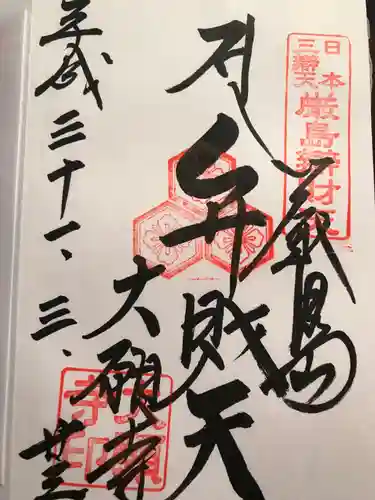 日本
三辯天
厳島辯財天
厳島
奉拝
弁財天
大願寺
平成三十一、三、廿三
大願寺印